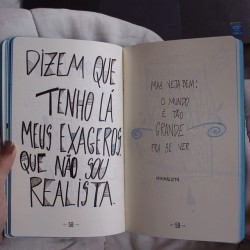 DIZEM QUE
TENHO LÁ
MEUS EXAGEROS.
QUE NÃO SOU
REALISTA.
— 58 —
MAS VEJA BEM:
O MUNDO
É TÃO
GRANDE
PRA SE VER
— 59 —